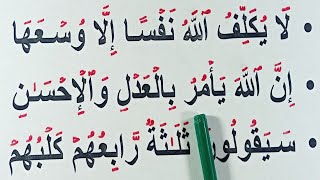 • لَا يُكَلِّفُ ٱللَّهُ نَفْسًا إِلَّا وُسْعَهَا
• إِنَّ ٱللَّهَ يَأْمُرُ بِٱلْعَدْلِ وَٱلْإِحْسَٰنِ
• سَيَقُولُونَ ثَلَٰثَةٌ رَّابِعُهُمْ كَلْبُهُمْ